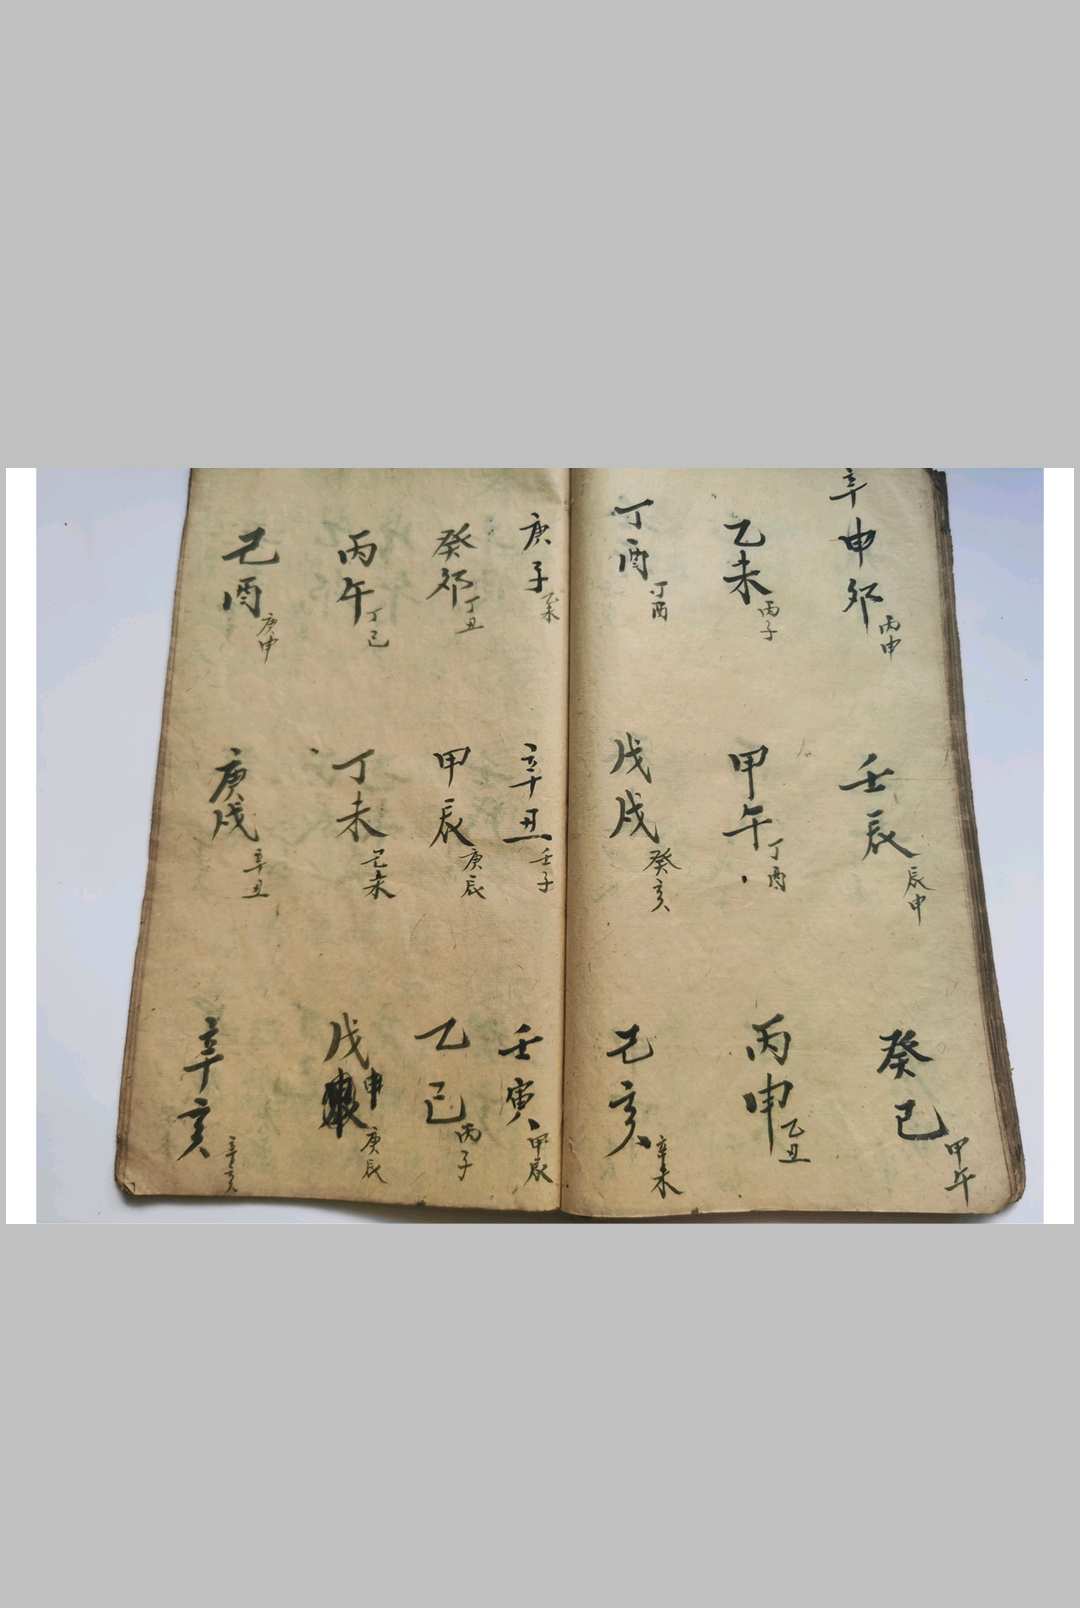 辛申卯
丙申
壬辰
辰申
癸巳
甲午
乙未
丙子
甲午
丁酉
丙申
乙丑
丁酉
丁酉
戊戌
癸亥
己亥
辛未
庚子
乙未
辛丑
壬子
壬寅
甲辰
癸卯
丁丑
甲辰
庚辰
乙巳
丙子
丙午
丁巳
丁未
己未
戊申
庚辰
己酉
庚申
庚戌
辛丑
辛亥
辛亥